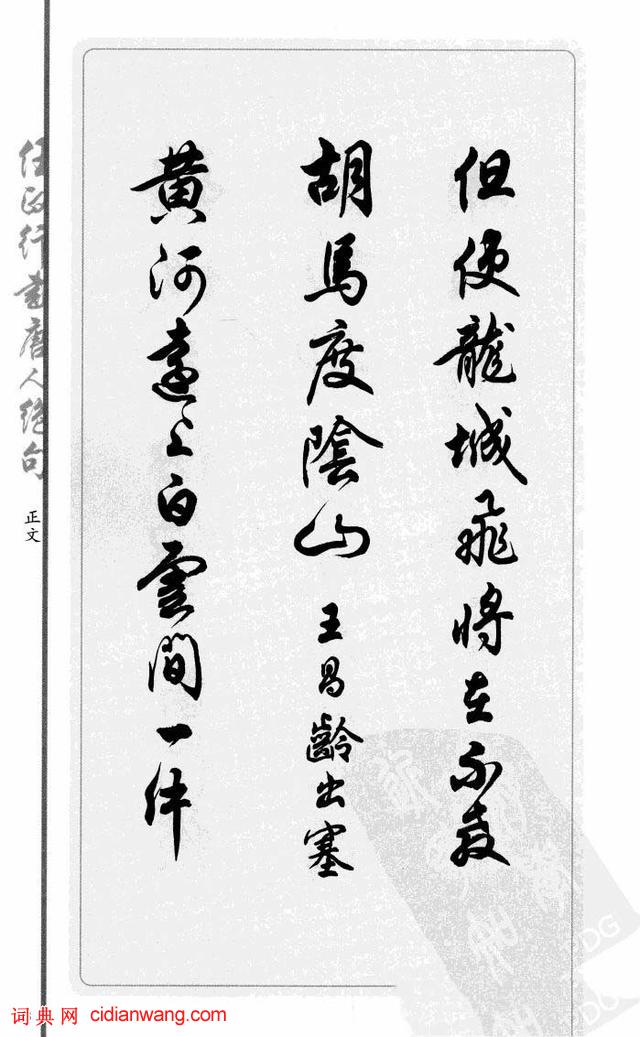 但使龍城飛將在不教
胡馬度陰山 王昌齡出塞
黄河遠上白雲間一片
任政行書唐人絕句
正文
词典网 cidianwang.com